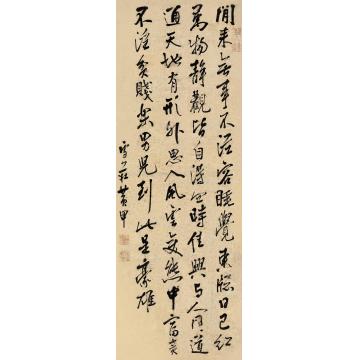 閒来無事不從容睡覺東窓日已紅
萬物静觀皆自得四時佳興与人同道
通天地有形外思入風雲變態中富貴
不淫貧賤樂男兒到此是豪雄
黄甲